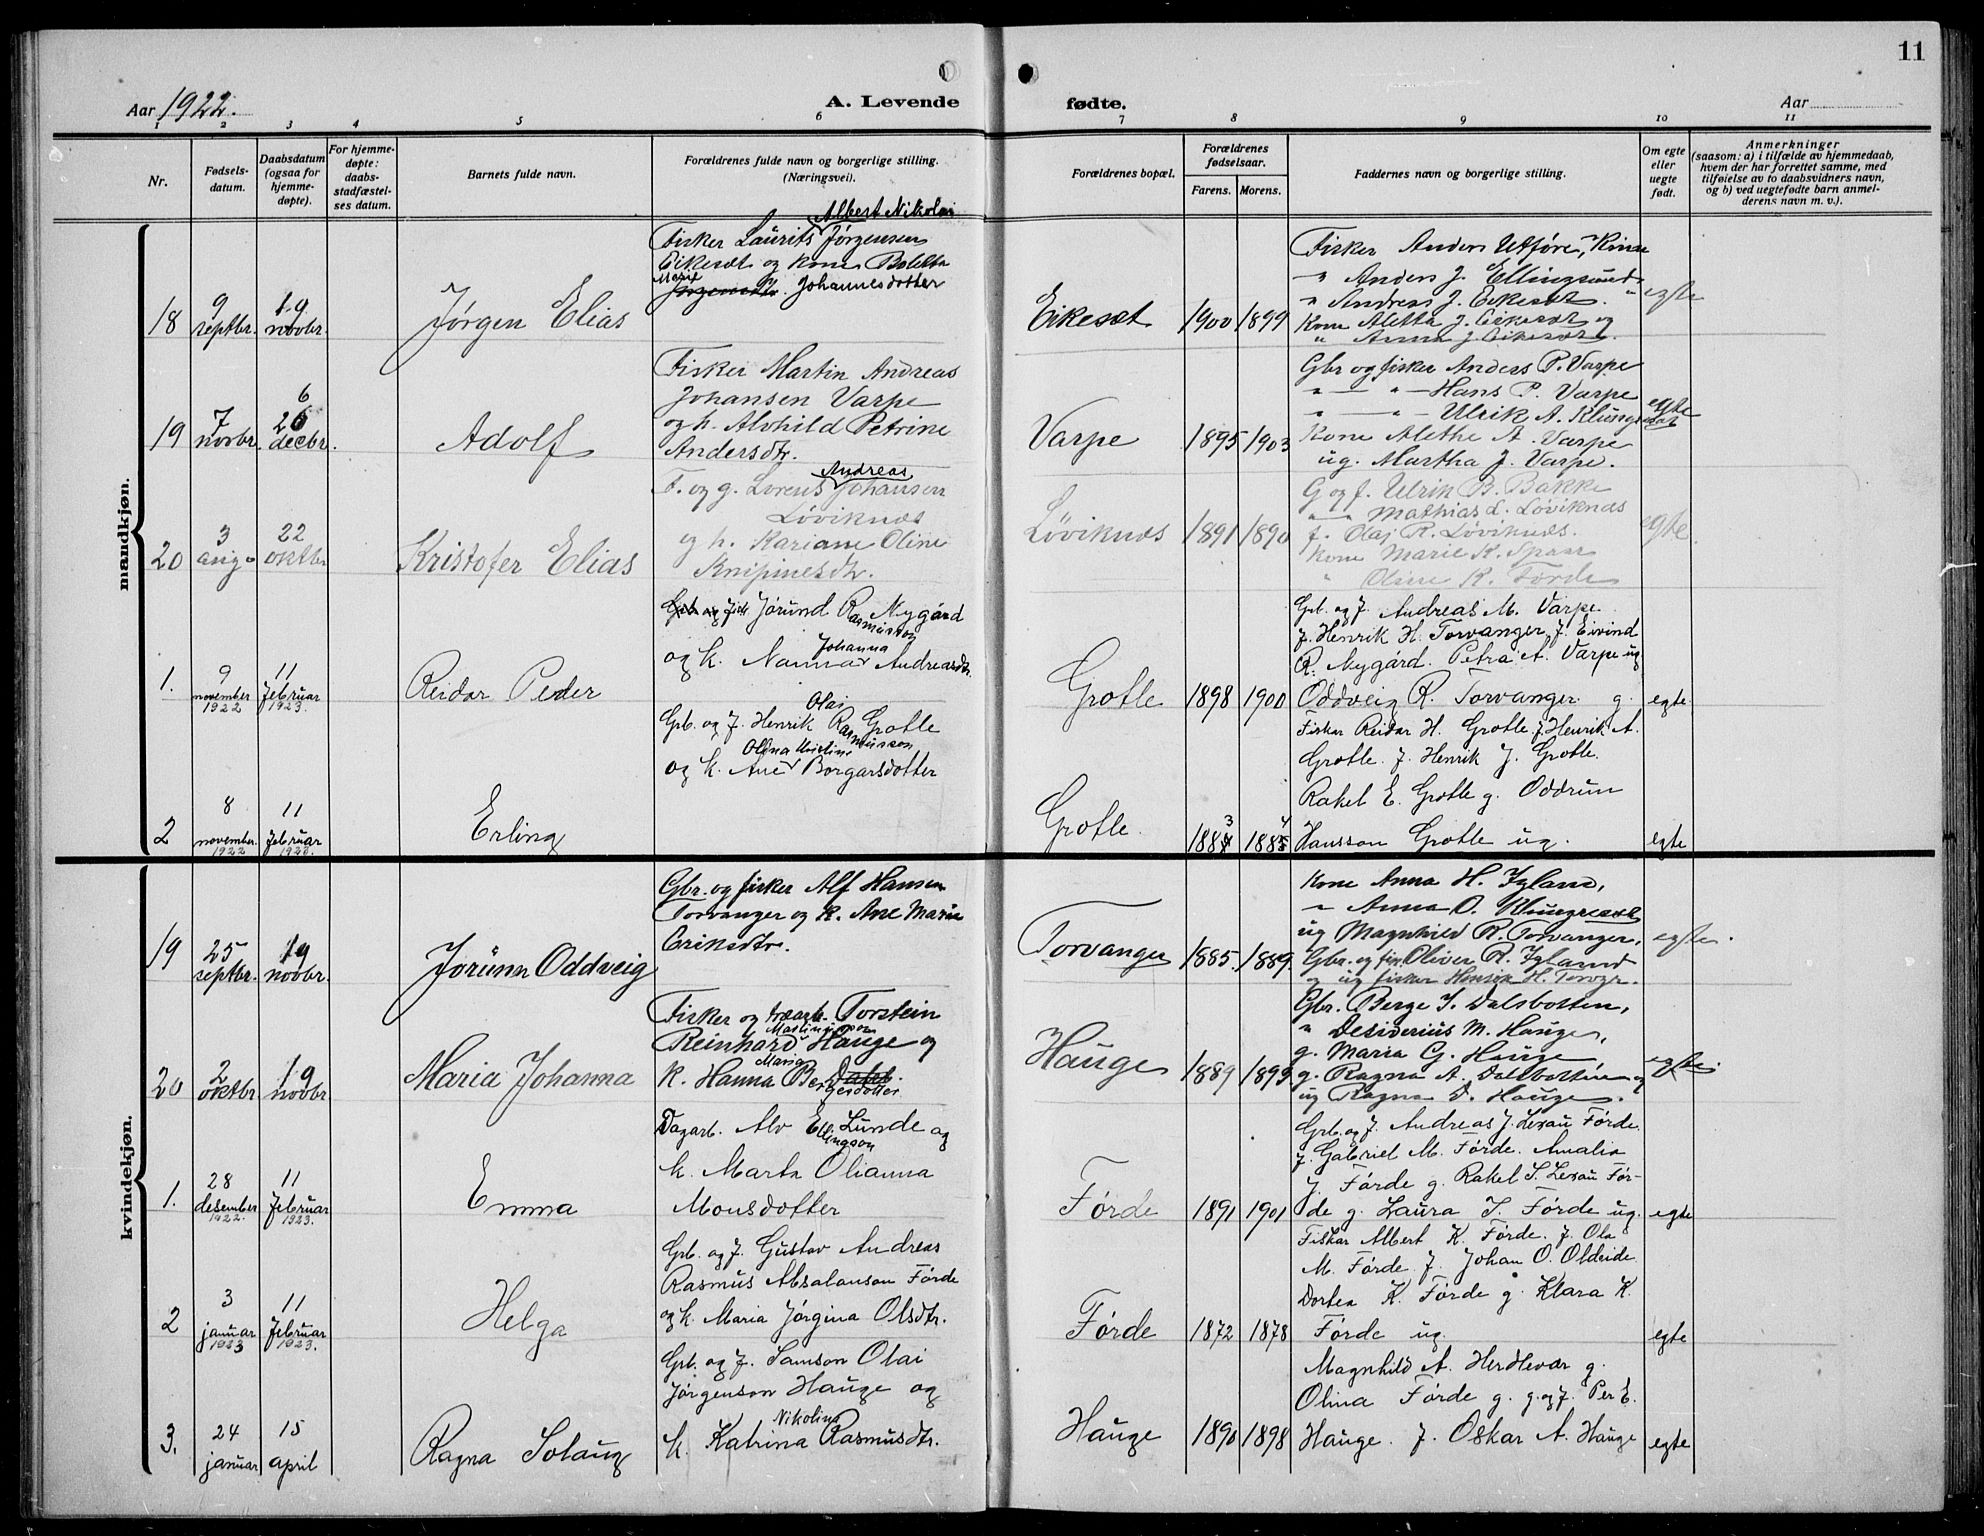 11
Aar 1922.
A. Levende fødte.
Aar
1 2 3 4 5 6 7 8 9 10 11
Nr.
Fødsels-
datum.
Daabsdatum
(ogsaa for
hjemme-
døpte).
For hjemme-
døpte:
daabs-
stadfæstel-
ses datum.
Barnets fulde navn.
Forældrenes fulde navn og borgerlige stilling.
(Næringsvei).
Forældrenes bopæl.
Forældrenes
fødselsaar.
Farens. Morens.
Faddernes navn og borgerlige stilling.
Om egte
eller
uegte
født.
Anmerkninger
(saasom: a) i tilfælde av hjemmedaab,
hvem der har forrettet samme, med
tilføielse av to daabsvidners navn,
og b) ved uegtefødte barn anmel-
derens navn m. v.).
mandkjøn.
18
9
septbr.
19
novbr.
Jørgen Elias
Albert Nikolai
Fisker Laurits Jørgensen
Eikesæt og kone Boletta
Marie
Johannesdotter
Eikesæt
1900 1899
Fisker Anders Utføre, Kinn
" Anders J. Ellingsund
" Andreas J. Eikesæt. "
Kone Aletta J. Eikesæt og
" Anna J. Eikesæt.
egte
19
7
novbr.
6
26
decbr.
Adolf
Fisker Martin Andreas
Johansen Varpe
og h. Alvhild Petrine
Andersdtr.
Varpe
1895 1903
Gbr og fisker Anders P. Varpe
" — " — Hans P. Varpe
" — " — Ulrik A. Klungresæt
Kone Alethe A. Varpe
ug. Martha J. Varpe.
egte
20
3
aug.
22
oktbr
Kristofer Elias
Andreas
F. og g. Lorens Johansen
Løviknæs
og h. Kariane Oline
Knipinesdtr.
Løviknæs
1891 1890
G og f. Ulrik B. Bakke
" " Mathias L. Løviknæs
f. Olaj R. Løviknæs.
Kone Marie K.
" Oline K. Førde
egte.
1.
9
november
1922
11
februar
1923.
Reidar Peder
Grb. og fisk Jørund R Nygård
asmusson
Johanna
og k. Nanna Andreasdtr.
Grotle
1898 1900
Grb. og f. Andreas M. Varpe.
f. Henrik H. Torvanger, f. Eivind
R. Nygård. Petra A. Varpe ug
Oddveig R. Torvanger g.
egte.
2
8
november.
1922
11
februar
1923.
Erling
Olai
Grb. og f. Henrik R Grotle
asmusson
Olina Kristine
og k. Ane Borgarsdotter
Grotle.
3
1887
4
1885
Fiskar Reidar H. Grotle f. Henrik A.
Grotle. f. Henrik J. Grotle.
Rakel E. Grotle g. Oddrun
Hansson Grotle ug.
egte
kvindekjøn.
19
25
septbr.
19
novbr.
Jorunn Oddveig
Gbr. og fisker Alf Hansen
Torvanger og k. Ane Marie
Eriksdtr.
Torvanger
1885. 1889.
Kone Anna H. Igland,
" Anna O. Klungresæt
ug Magnhild R. Torvanger,
Gbr. og fis Oliver R. Igland
og ug fisker Henrik H. Torvgr.
egte.
20
2
oktbr.
19
novbr
Maria Johanna
Fisker og træarb. Torstein
Martinusson
Reinhard Hauge og
Maria
k. Hanna Ber
gesdotter
Hauge
1889 1893
Gbr. Berge J. Dalsbotten,
" Desiderius M. Hauge,
g. Maria G. Hauge
g. Ragna A. Dalsbotten og
ug Ragna D. Hauge.
egte.
1.
28
desember
1922.
11
februar
1923.
Emma
Dagarb. Alv E Lunde og
llingson
k. Marta Olianna
Monsdotter
Førde
1891 1901
Grb. og f. Andreas J. Lexau Førde.
f. Gabriel M. Førde. Amalia
J. Førde g. Rakel S. Lexau Før-
de g. Laura S. Førde ug.
egte
2
3
januar
1923
11
februar
1923.
Helga
Grb. og f. Gustav Andreas
Rasmus Absalonson Førde
og k. Maria Jørgina Olsdtr.
Førde
1872 1878
Fiskar Albert K. Førde. f. Ola
M. Førde f. Johan O. Oldeide
Dortea K. Førde g. Klara K.
Førde ug.
egte
3.
24
januar
15
april
Ragna Solaug
Grb. og f. Samson Olai
Jørgenson Hauge og
Nikolina
k. Katrina Rasmusdtr.
Hauge
1890 1898
Magnhild A. Herdlevær g.
Olina Førde g. g. og f. Per E.
Hauge. f. Oskar A. Hauge
egte